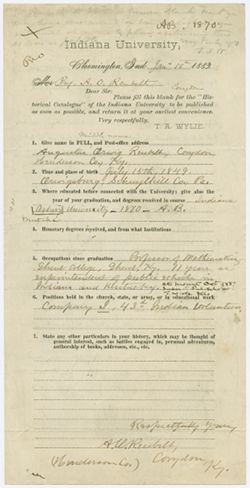 A.B. 1870
Indiana University,
Bloomington, Ind. Jan. 15th 1889
Prof. A. O. Reubelt
Corydon
Dear Sir:
Please fill this blank for the "His-
torical Catalogue" of the Indiana University to be published
as soon as possible, and return it at your earliest convenience.
Very respectfully,
T. A. WYLIE.
1. Give name in FULL, and Post-office address
Reubelt, Corydon
Henderson Co. Ky.
2. Time and place of birth July 15th, 1849
Schuylkill Co. Pa.
3. Where educated before connected with University; give also the
year of your graduation, and degrees received in course Indiana
University - 1870 - A.B.
4. Honorary degrees received, and from what Institutions
5. Occupations since graduation Professor of Mathematics
Ghent College, Ghent, Ky. 11 years as
Superintendent of public schools in
Indiana and Kentucky.
6. Positions held in the church, state, or army, or in educational work
Company I, 43d Indiana Volunteers
7. State any other particulars in your history, which may be thought of
general interest, such as battles engaged in, personal adventures,
authorship of books, addresses, etc., etc.
Respectfully Yours
A. O. Reubelt
(Henderson Co.) Corydon
Ky.